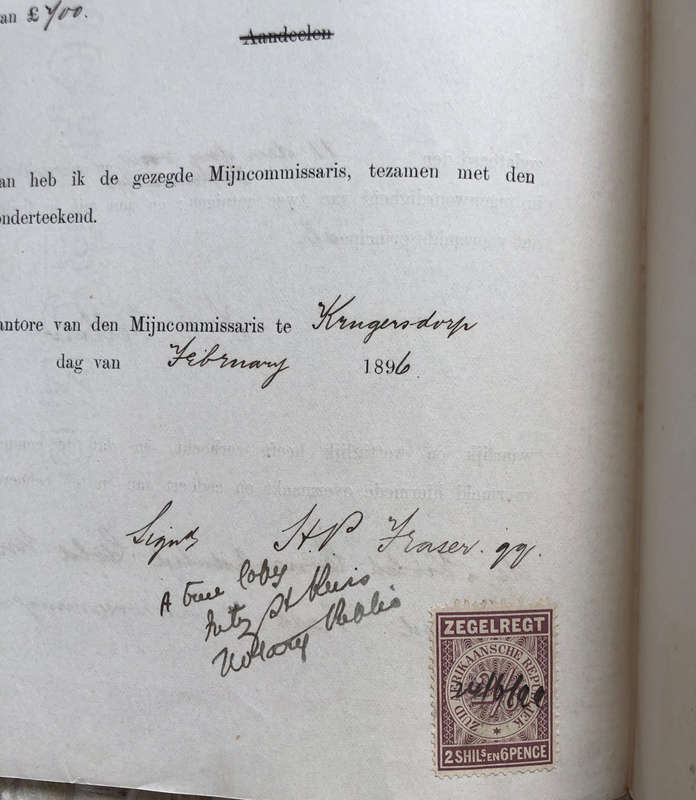 an £700.
Aandeelen
an heb ik de gezegde Mijncommissaris, tezamen met den
onderteekend.
antore van den Mijncommissaris te Krugersdorp
dag van February 1896.
Signd H.P. Fraser. qq.
A true Copy
St Kuis
Notary Public
ZEGELREGT
ZUID AFRIKAANSCHE REPUBLIEK
2 SHILs. EN 6 PENCE